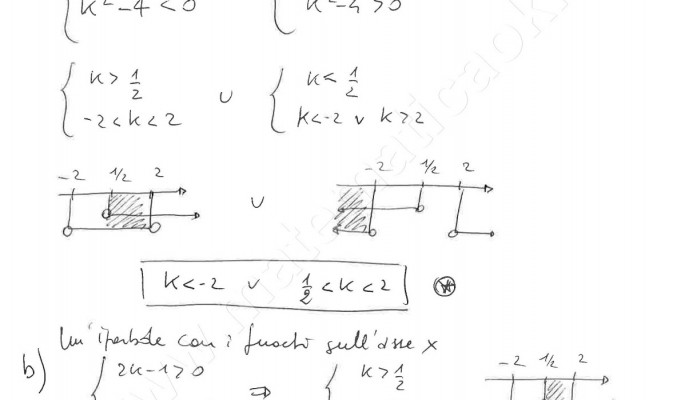 { k²-4<0 { k²-4>0
{ k>1/2 ∪ { k<1/2
-2<k<2 k<-2 v k>2
-2 1/2 2 ∪ -2 1/2 2
k<-2 v 1/2<k<2
Un'iperbole con i fuochi sull'asse x
b) { 2k-1>0 ⇒ { k>1/2 -2 1/2 2